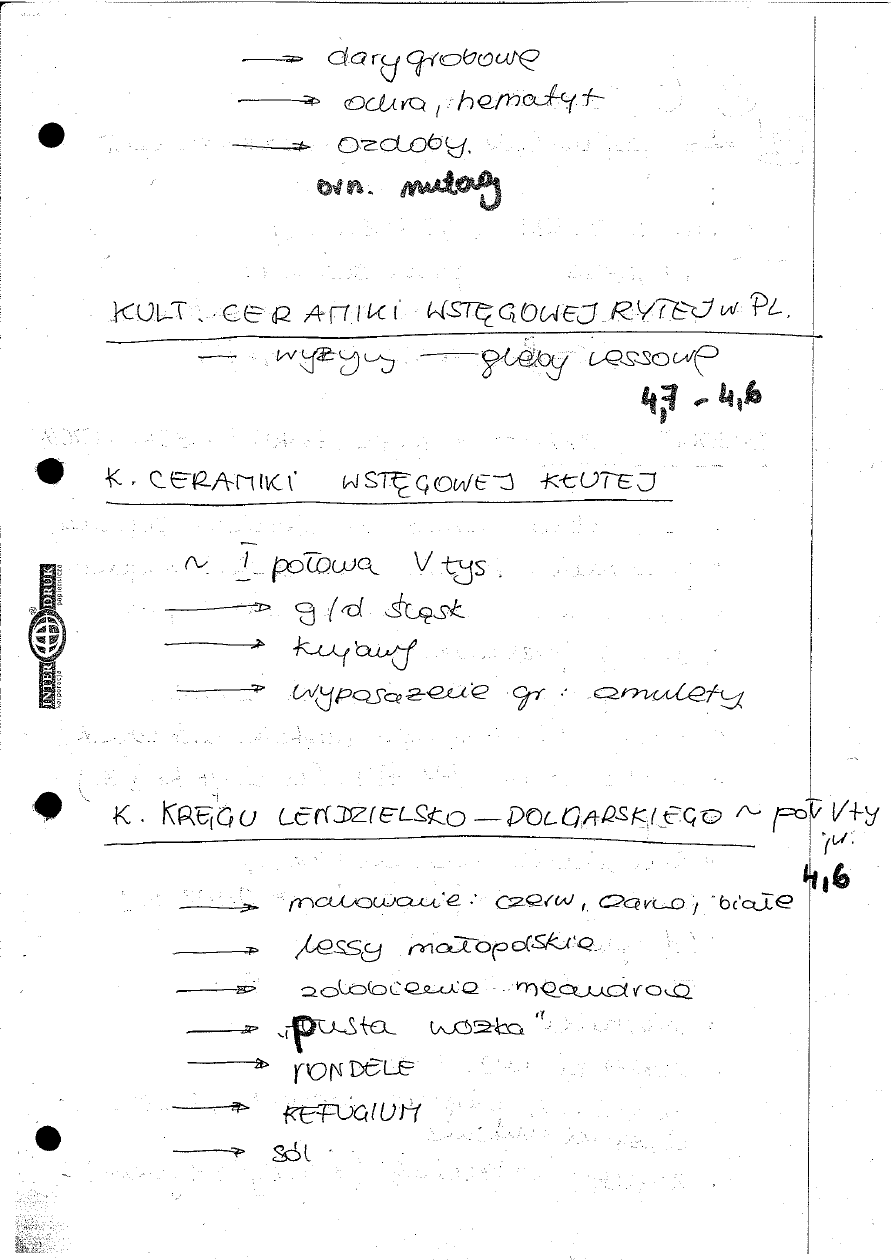 → dary grobowe
→ ochra, hematyt
→ ozdoby.
orn. nutowy
KULT. CERAMIKI WSTĘGOWEJ RYTEJ W PL.
— wyżyny — gleby lessowe
4,7 - 4,6
K. CERAMIKI WSTĘGOWEJ KŁUTEJ
~ I połowa V tys.
→ g/d śląsk
→ kujawy
→ wyposażenie gr: amulety
INTER DRUK
korporacja papiernicza
K. KRĘGU LENDZIELSKO – POLGARSKIEGO ~ poł V ty
4,6
→ malowanie: czerw, czarno, białe
→ lessy małopolskie
→ zdobienie meandrowe
→ „pusta nóżka"
→ RONDELE
→ REFUGIUM
→ sól